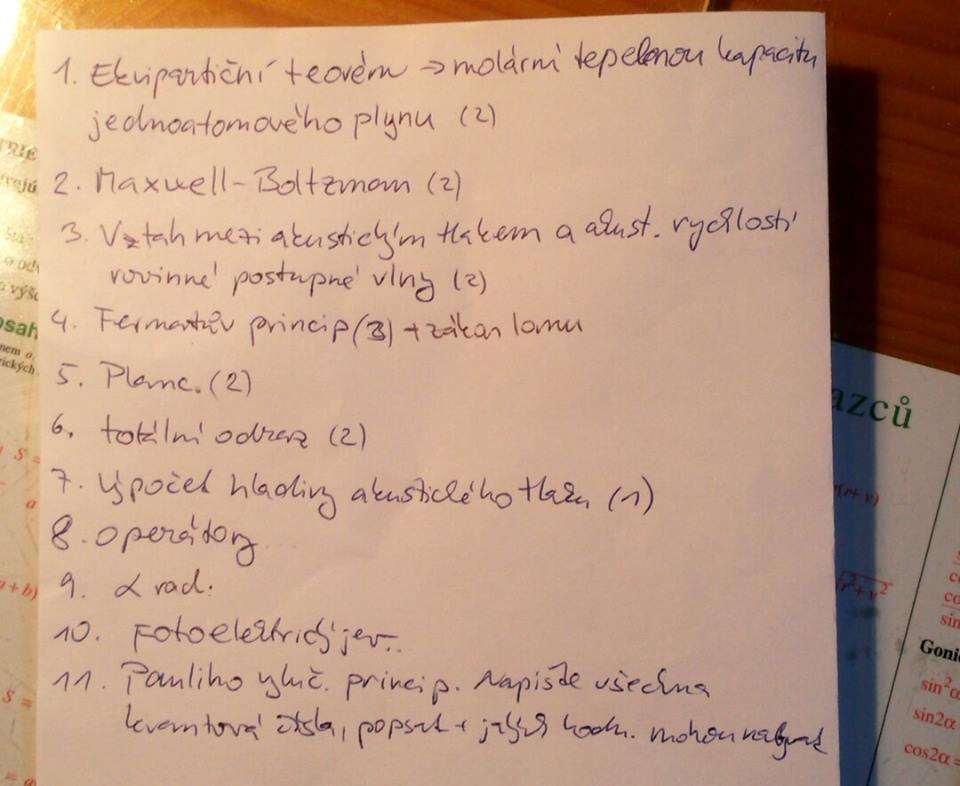 1. Ekvipartiční teorém → molární tepelnou kapacitu
jednoatomového plynu (2)
2. Maxwell-Boltzman (2)
3. Vztah mezi akustickým tlakem a akust. rychlostí
rovinné postupné vlny (2)
4. Fermatův princip (3) + zákon lomu
5. Planc. (2)
6. totální odraz (2)
7. Výpočet hladiny akustického tlaku (1)
8. operátory
9. α rad.
10. Fotoelektrický jev.
11. Pauliho vyluč. princip. Napište všechna
kvantová čísla, popsat + jakých hodn. mohou nabývat
azců
osah
r(r + v)
√r² + v²
S =
a
a + b)
S =
= a
Gonio
sin²α
sin2α
cos2α =